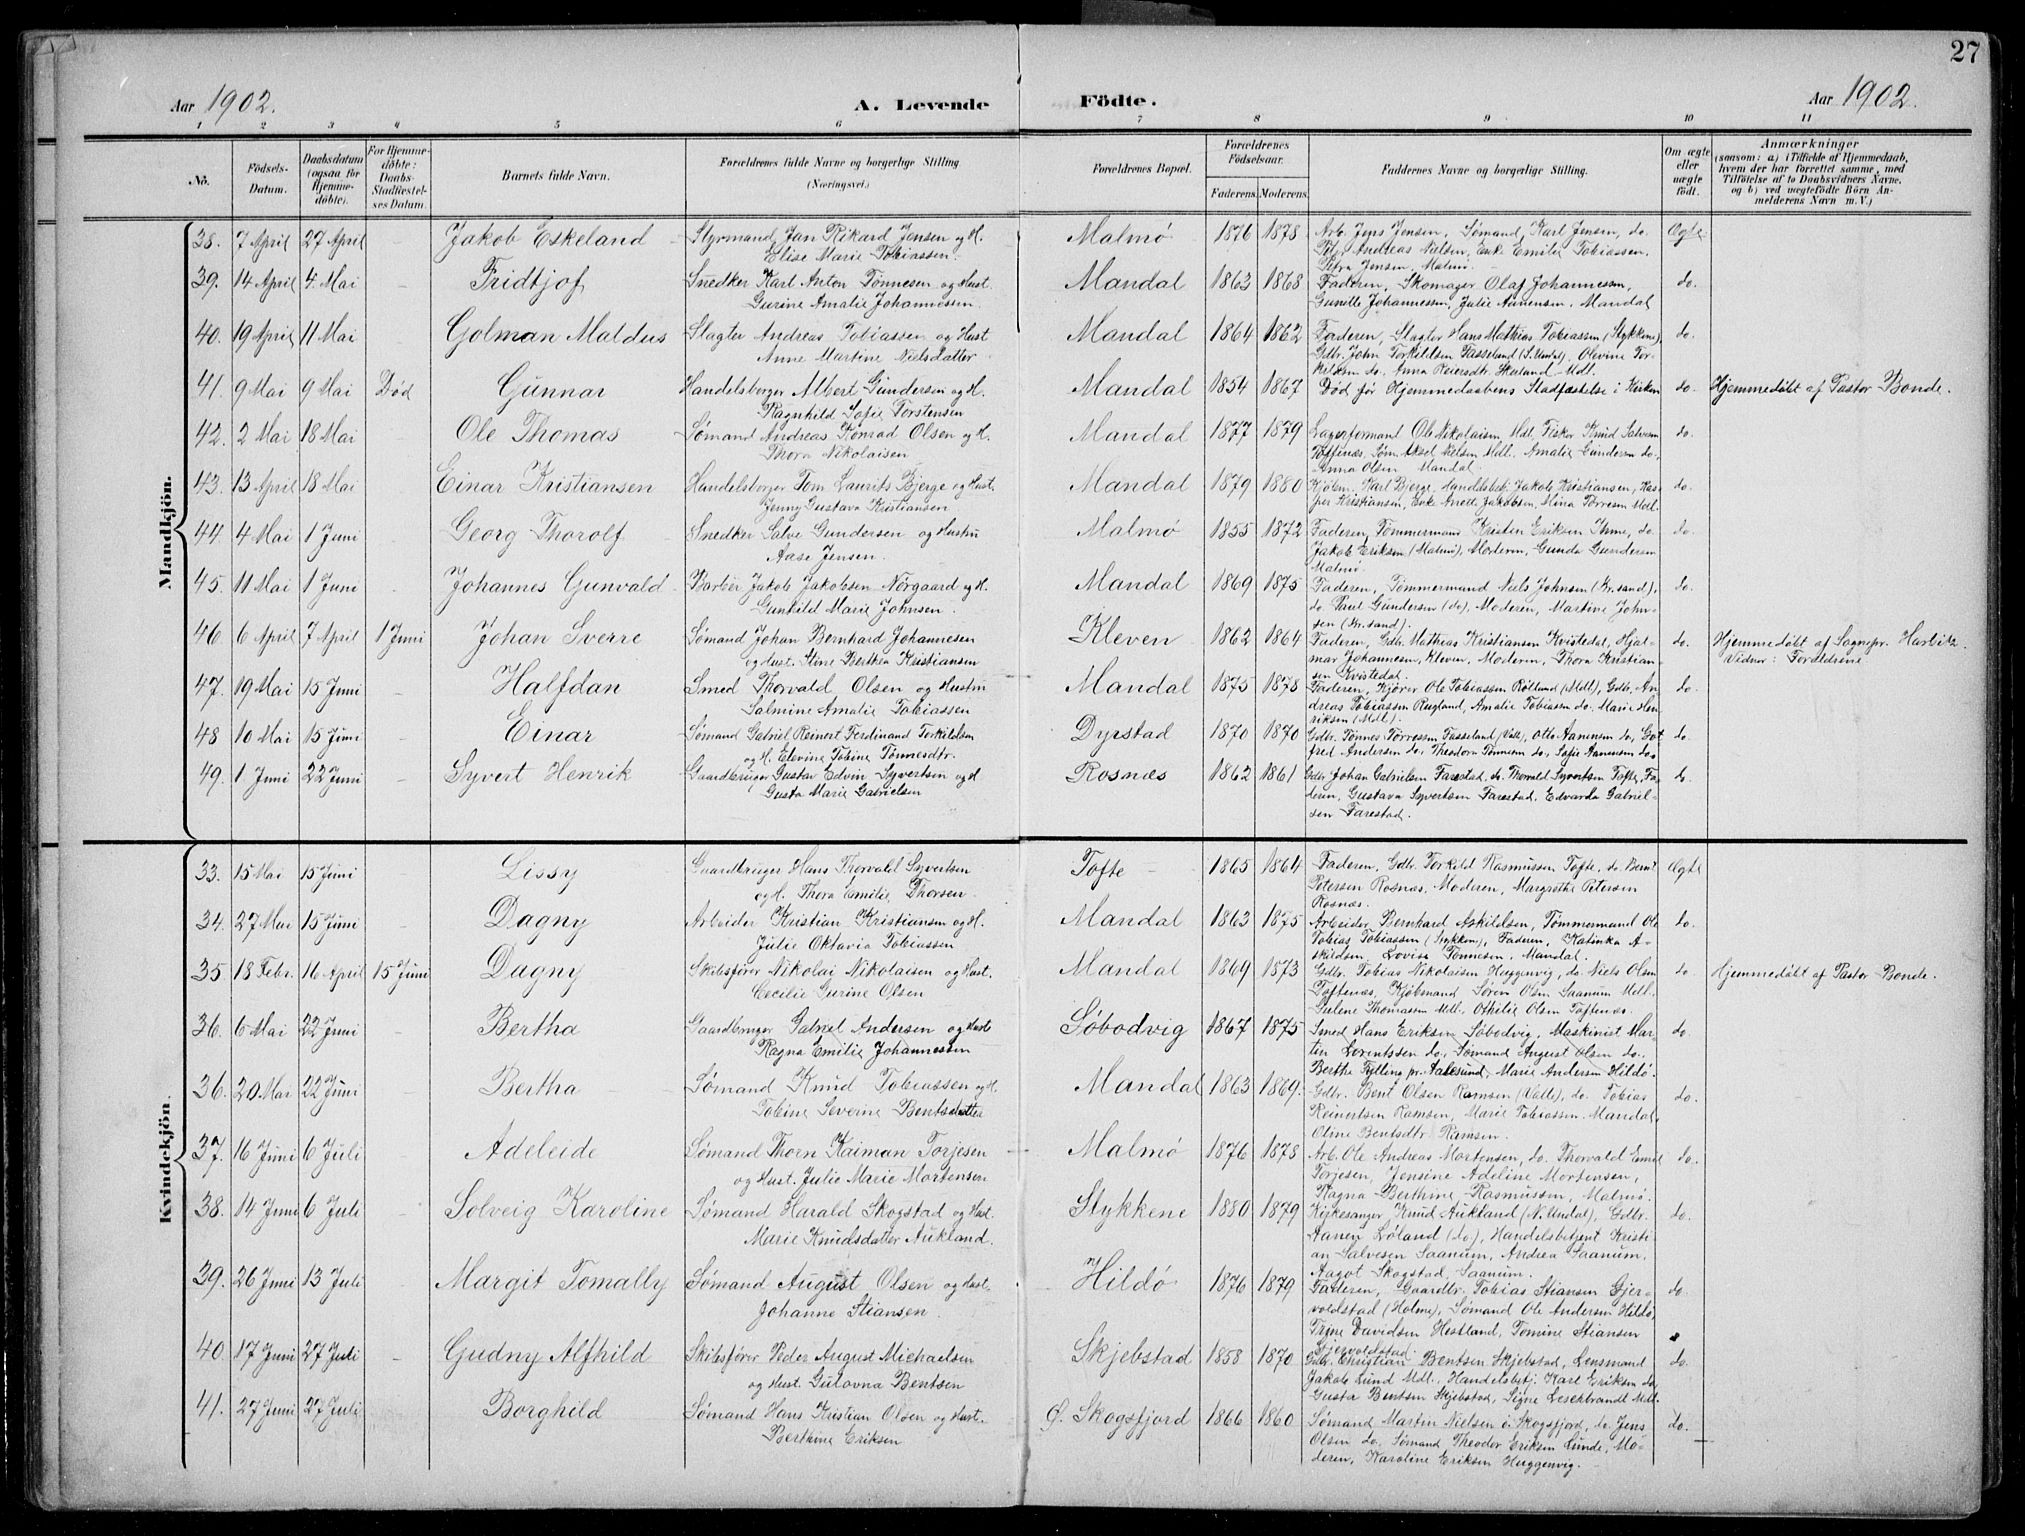 27
Aar 1902. A. Levende Födte. Aar 1902.
1 2 3 4 5 6 7 8 9 10 11
No. Födsels-Datum. Daabsdatum (ogsaa for Hjemme-döbte). For Hjemme-döbte: Daabs-Stadfæstel-ses Datum. Barnets fulde Navn. Forældrenes fulde Navne og borgerlige Stilling. (Næringsvei.) Forældrenes Bopæl. Forældrenes Födselsaar. Faderens. Moderens. Faddernes Navne og borgerlige Stilling. Om ægte eller uægte födt. Anmærkninger (saasom: a) i Tilfælde af Hjemmedaab, hvem der har forrettet samme, med Tilföielse af to Daabsvidners Navne, og b) ved uægtefödte Börn An-melderens Navn m. V.)
Mandkjön.
38. 7 April 27 April - Jakob Eskeland Styrmand Jan Rikard Jensen og H. Malmø 1876 1878 Arb. Jens Jensen, Sømand Karl Jensen, do. Ægte
Elise Marie Tobiassen. Andreas Nielsen, Enke Emilie Tobiassen,
Petra Jensen, Malmø.
39. 14 April 4 Mai - Fridtjof Snedker Karl Anton Tønnesen og Hust. Mandal 1863 1868 Faderen, Skomager Olaf Johannessen, do.
Gurine Amalie Johannessen. Gunelle Johannessen, Julie Aanensen, Mandal
40. 19 April 11 Mai Golman Maldus Slagter Andreas Tobiassen og Hust Mandal 1864 1862 Faderen, Slagter Hans Mathias Tobiassen (Stykkene), do.
Anne Martine Nielsdatter Gdbr. John Torkildsen Fasseland (S. Undal), Olevine Tor-
kildsen do. Anna Reiersdtr. Skeiland Mdl.
41. 9 Mai 9 Mai Død Gunnar Handelsborger Albert Gundersen og H. Mandal 1854 1867 Død før Hjemmedaabens Stadfæstelse i Kirken do. Hjemmedøbt af Pastor Bonde.
Ragnhild Sofie Torstensen
42. 2 Mai 18 Mai Ole Thomas Sømand Andreas Konrad Olsen og H. Mandal 1877 1879 Lagerformand Ole Nikolaisen Mdl. Fisker Knud Salvesen do.
Thora Nikolaisen Toftenæs, Søm. Aksel Nielsen Mdl. Amalie Gundersen do.,
Anna Olsen Mandal.
43. 13 April 18 Mai Einar Kristiansen Handelsborger Tom Laurits Bjerge og Hust. Mandal 1879 1880 Kjøbm. Karl Bjerge, Handelsbetj. Jakob Kristiansen, Kas- do.
Jenny Gustava Kristiansen per Kristiansen, Enke Anette Jakobsen, Mina Tørresen Mdl.
44. 4 Mai 1 Juni - Georg Thorolf Snedker Salve Gundersen og Hustru Malmø 1855 1872 Faderen, Tømmermand Kristen Eriksen Ime, do. do.
Aase Jensen. Jakob Eriksen (Malmø), Moderen, Gunda Gundersen
Malmø.
45. 11 Mai 1 Juni Johannes Gunvald Barber Jakob Jakobsen Nørgaard og H. Mandal 1869 1875 Faderen, Tømmermand Niels Johnsen (Kr.sand), do.
Gunhild Marie Johnsen. do. Paul Gundersen (do), Moderen, Martine John-
sen (Kr.sand).
46 6 April 7 April 1 Juni Johan Sverre Sømand Johan Bernhard Johannesen Kleven 1862 1864 Faderen, Gdb. Mathias Kristiansen Kvistedal, Hjal- do. Hjemmedøbt af Sognepr. Harbitz.
og Hust. Stine Berthea Kristiansen mar Johannesen, Kleven, Moderen, Thora Kristian- Vidner: Forældrene
sen Kvistedal.
47. 19 Mai 15 Juni - Halfdan Smed Thorvald Olsen og Hustru Mandal 1875 1878 Faderen, Kjører Ole Tobiassen Røilund (Mdl), Gdb. An- do.
Salmine Amalie Tobiassen dreas Tobiassen Rugland, Amalie Tobiassen do. Marie Hen-
riksen (Mdl).
48 10 Mai 15 Juni - Einar Sømand Gabriel Reinert Ferdinand Torkildsen Dyrstad 1870 1870 Gdbr. Tønnes Tørressen Fasseland (Valle), Otto Aanensen do, Got do.
og H. Elevine Tobine Tønnesdtr. fred Andersen do, Theodora Tønnesen do, Sofie Aanensen do
49. 1 Juni 22 Juni - Syvert Henrik Gaardbruger Gustav Edvin Syvertsen og H Rosnæs 1862 1861 Gdbr. Johan Gabrielsen Farestad, do. Thorvald Syvertsen Tofte, Fa- do.
Gusta Marie Gabrielsen deren, Gustava Syvertsen Farestad, Edvarda Gabriel-
sen Farestad.
Kvindekjön.
33. 15 Mai 15 Juni Lissy Gaardbruger Hans Thorvald Syvertsen Tofte 1865 1864 Faderen, Gdb. Torkild Rasmussen Tofte, do. Bernt Ægte
og H. Thora Emilie Thorsen. Petersen Rosnæs. Moderen, Margrethe Petersen
Rosnæs.
34. 27 Mai 15 Juni Dagny Arbeider Kristian Kristiansen og H. Mandal 1863 1875 Arbeider Bernhard Askildsen, Tømmermand Ole do.
Julie Oktavia Tobiassen Tobias Tobiassen (Stykken), Faderen, Katinka A-
skildsen, Lovise Tønnesen, Mandal.
35 18 Febr. 16 April 15 Juni Dagny Skibsfører Nikolai Nikolaisen og Hust. Mandal 1869 1873 Gdbr. Tobias Nikolaisen Huggenvig, do. Niels Olsen do. Hjemmedøbt af Pastor Bonde.
Cecilie Gurine Olsen Toftenæs, Kjøbmand Søren Olsen Saanum Mdl.
Thomassen Mdl. Othilie Olsen Toftenæs.
36. 6 Mai 22 Juni - Bertha Gaardbruger Gabriel Andersen og Hust Søbodvig 1867 1875 Smed Hans Eriksen Søbodvig, Maskinist Mar- do.
Ragna Emilie Johannessen tin Lorentssen do, Sømand August Olsen do.
Berthe Fylling pr. Aalesund, Marie Andersen Hildø.
36. 20 Mai 22 Juni - Bertha Sømand Knud Tobiassen og H. Mandal 1863 1869. Gdbr. Bent Olsen Ramsen (Valle), do. Tobias do.
Tobine Severine Bentsdatter Reinertsen Ramsen, Marie Tobiassen Mandal,
Oline Bentsdtr. Ramsen.
37. 16 Juni 6 Juli Adeleide Sømand Thorn Kaiman Torjesen Malmø 1876 1878 Arb. Ole Andreas Mortensen, do. Thorvald Emil do.
og Hust. Julie Marie Mortensen Torjesen, Jensine Adeline Mortensen,
Ragna Berthine Rasmussen, Malmø.
38. 14 Juni 6 Juli Solveig Karoline Sømand Harald Skogstad og Hust. Stykkene 1880 1879 Kirkesanger Knud Aukland (N. Undal), Gdbr. do.
Marie Knudsdatter Aukland. Aanen Løland (do), Handelsbetjent Kristi
an Salvesen Saanum, Andrea Saanum.
Aagot Skogstad Saanum.
39. 26 Juni 13 Juli Margit Tomally Sømand August Olsen og Hust. Hildø 1876 1879 Faderen, Gaardbr. Tobias Stiansen Gjer- do.
Johanne Stiansen. voldstad (Holme), Sømand Ole Andersen Hildø,
Trine Davidsen Hestland, Tomine Stiansen
Gjervoldstad.
40. 17 Juni 27 Juli - Gudny Alfhild Skibsfører Peder August Michaelsen Skjebstad 1858 1870 Gdbr. Christian Bentsen Skjebstad, Lensmand do.
og Hust. Gulovna Bentsen Jakob Lund Mdl., Handelsbetj: Karl Eriksen do,
Gusta Bentsen Skjebstad, Signe Leschbrandt Mdl.
41. 27 Juni 27 Juli Borghild Sømand Hans Kristian Olsen og Hust. Ø. Skogsfjord 1866 1860 Sømand Martin Nielsen i Skogsfjord, do. Jens do.
Berthine Eriksen Olsen do. Sømand Theodor Eriksen Lunde, Mo-
deren, Karoline Eriksen Huggenvig.